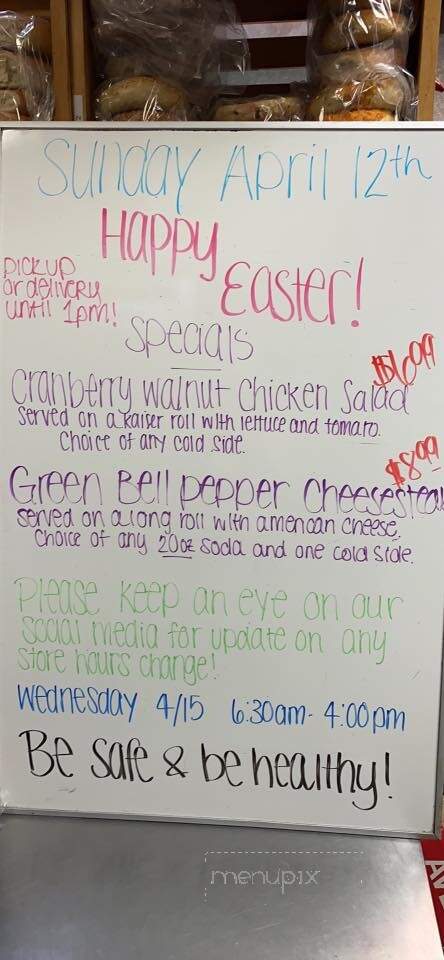 Sunday April 12th
Happy
Easter!
Pickup
or delivery
until 1pm!
Specials
$6.99
Cranberry walnut chicken Salad
Served on a kaiser roll with lettuce and tomato.
Choice of any cold side.
$8.99
Green Bell pepper cheesesteak
Served on a long roll with american cheese.
Choice of any 20oz soda and one cold side.
Please keep an eye on our
social media for update on any
store hours change!
Wednesday 4/15 6:30am - 4:00pm
Be safe & be healthy!
menupix